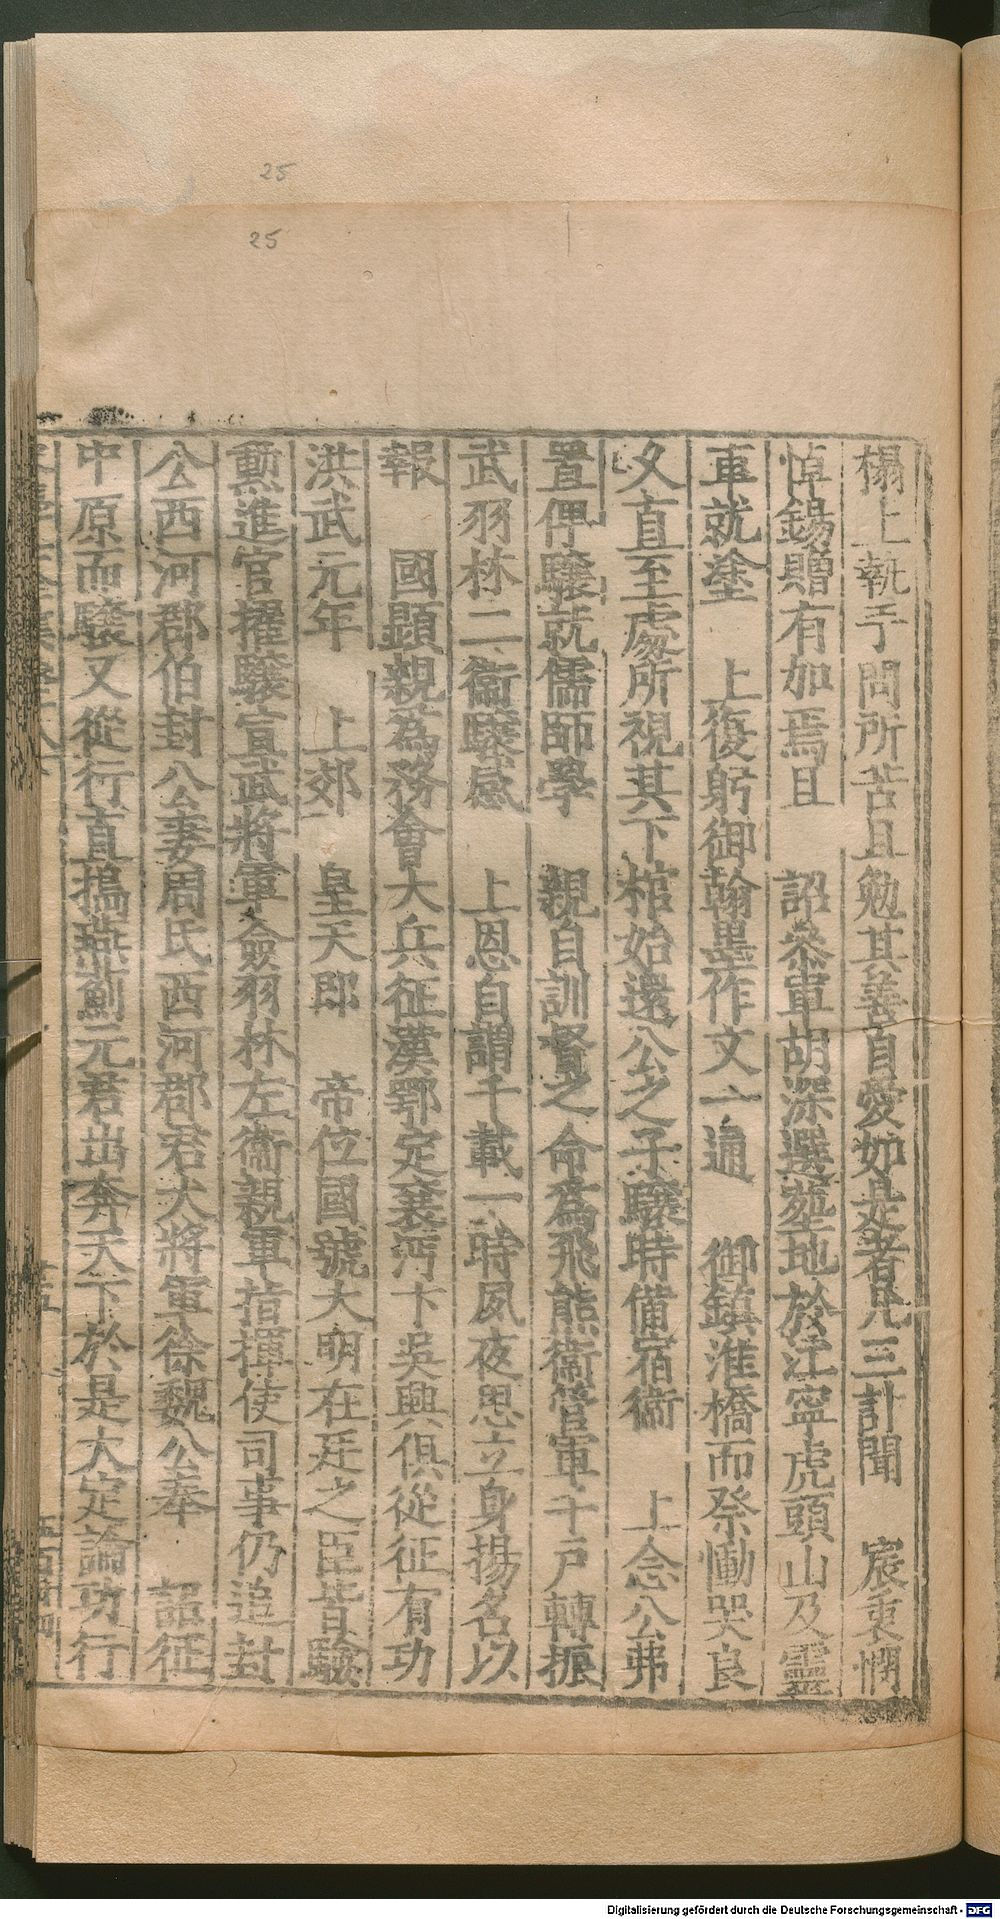 25
25
榻上執手問所苦且勉其善自愛如是者凡三訃聞　宸衷憫
悼錫贈有如焉且　詔叅軍胡深選塋地於江寧虎頭山及靈
車就塗　上復躬御翰墨作文一通　御鎮淮橋而祭慟哭良
久直至處所視其下棺始還公之子驥時備宿衞　上念公弗
置俾驥就儒師學　親自訓督之命為飛熊衞管軍千戶轉振
武羽林二衞驥感　上恩自謂千載一時夙夜思立身揚名以
報　國顯親為務會大兵征漢鄂定襄沔下吳興俱從征有功
洪武元年　上郊　皇天即　帝位國號大明在廷之臣皆驗
勳進官擢驥宣武將軍僉羽林左衞親軍指揮使司事仍追封
公西河郡伯封公妻周氏西河郡君大將軍徐魏公奉　詔征
中原而驥又從行直搗燕薊元君出奔天下於是大定論功行
Digitalisierung gefördert durch die Deutsche Forschungsgemeinschaft - DFG